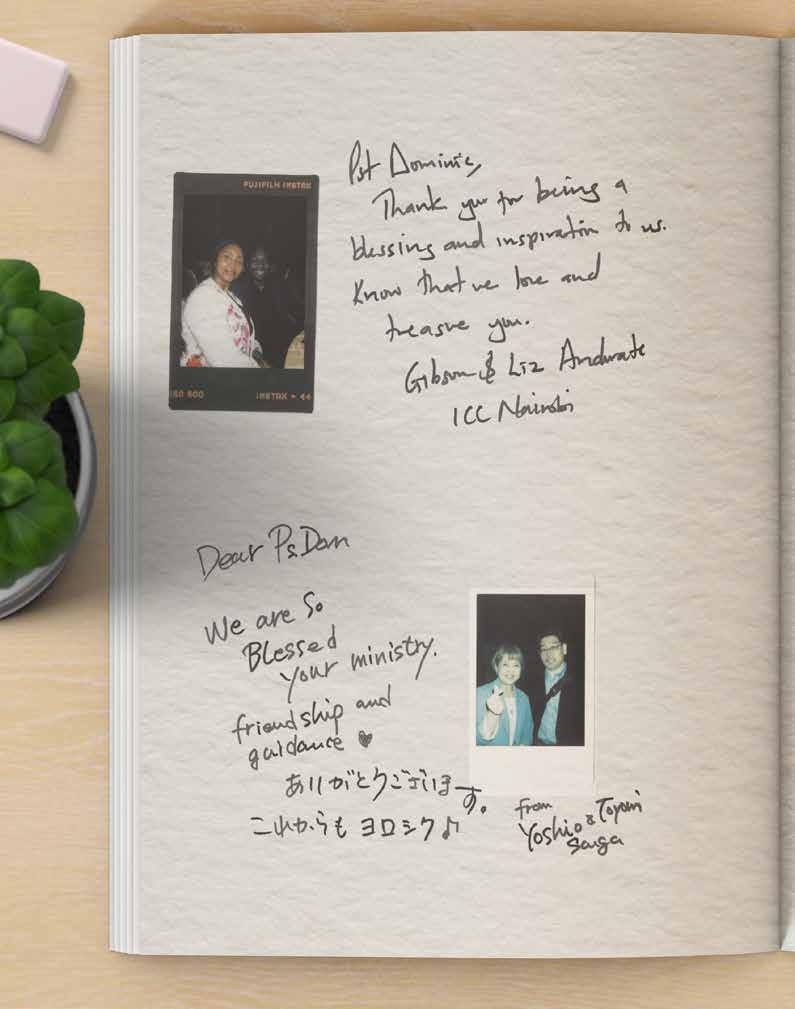 FUJIFILM INSTAX
ISO 800
INSTAX
Pst Dominic,
Thank you for being a
blessing and inspiration to us.
Know that we love and
treasure you.
Gibson & Liz
ICC Nairobi
Dear Ps Dom
We are so
Blessed
your ministry.
friendship and
guidance ♥
ありがとうございます。
これからもヨロシク♪
from
Yoshio &
Saiga